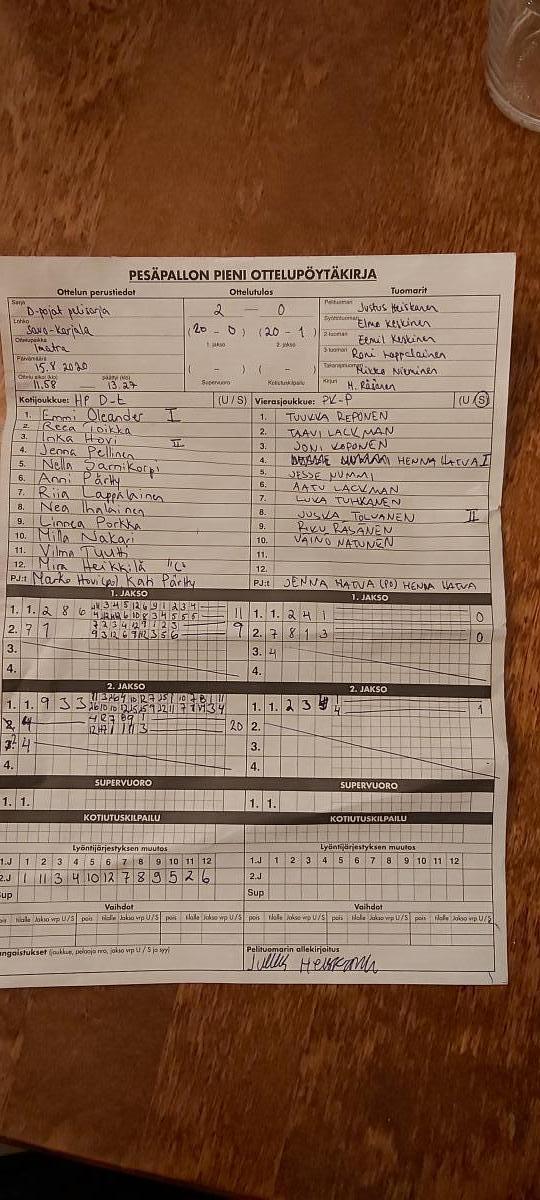 PESÄPALLON PIENI OTTELUPÖYTÄKIRJA
Ottelun perustiedot Ottelutulos Tuomarit
Sarja D-tytöt
Lohko Savo-Karjala
Ottelupaikka Imatra
Päivämäärä 15.8.2020
Ottelu alkoi (klo) 11.58 päättyi (klo) 13.27
2 - 0
(20 - 0) (20 - 1)
1. jakso 2. jakso
( - ) ( - )
Supervuoro Kotiutuskilpailu
Pelituomari Justus Heiskanen
Syöttötuomari Elmo Keskinen
2-tuomari Eemil Keskinen
3-tuomari Roni Loppalainen
Takarajatuomari Mikko Nieminen
Kirjuri M. Räsänen
Kotijoukkue: HP D-t (U / S)
1. Emmi Oleander I
2. Reea Toikka
3. Inka Hovi II
4. Jenna Pellinen
5. Nella Sarnikorpi
6. Anni Pärtty
7. Riia Lappalainen
8. Nea Ihalainen
9. Linnea Porkka
10. Milla Nakari
11. Vilma Tyutti
12. Mira Heikkilä "C"
PJ:t Marko Hovi (po) Kati Pärtty
Vierasjoukkue: PK-P (U / S)
1. TUUKKA REPONEN
2. TAAVI LACKMAN
3. JONI KOPONEN
4. HENNA HATVA I
5. JESSE NUMMI
6. AATU LACKMAN
7. LUKA TUHKANEN
8. JUSKA TOLVANEN II
9. RIKU RÄSÄNEN
10. VÄINÖ NATUNEN
11.
12.
PJ:t JENNA HATVA (PO) HENNA HATVA
1. JAKSO
1. 1. 2 8 6 11
2. 7 1 9
3.
4.
1. JAKSO
1. 1. 2 4 1 0
2. 7 8 1 3 0
3. 4
4.
2. JAKSO
1. 1. 9 3 3
20
4
4.
2. JAKSO
1. 1. 2 3 1
2.
3.
4.
SUPERVUORO
1. 1.
SUPERVUORO
1. 1.
KOTIUTUSKILPAILU
KOTIUTUSKILPAILU
Lyöntijärjestyksen muutos
1.J 1 2 3 4 5 6 7 8 9 10 11 12
2.J 1 11 3 4 10 12 7 8 9 5 2 6
Sup
Lyöntijärjestyksen muutos
1.J 1 2 3 4 5 6 7 8 9 10 11 12
2.J
Sup
Vaihdot
pois tilalle Jakso vrp U/S pois tilalle Jakso vrp U/S pois tilalle Jakso vrp U/S
Vaihdot
pois tilalle Jakso vrp U/S pois tilalle Jakso vrp U/S pois tilalle Jakso vrp U/S
ngaistukset (joukkue, pelaaja nro, jakso vrp U / S ja syy)
Pelituomarin allekirjoitus
Justus Heiskanen